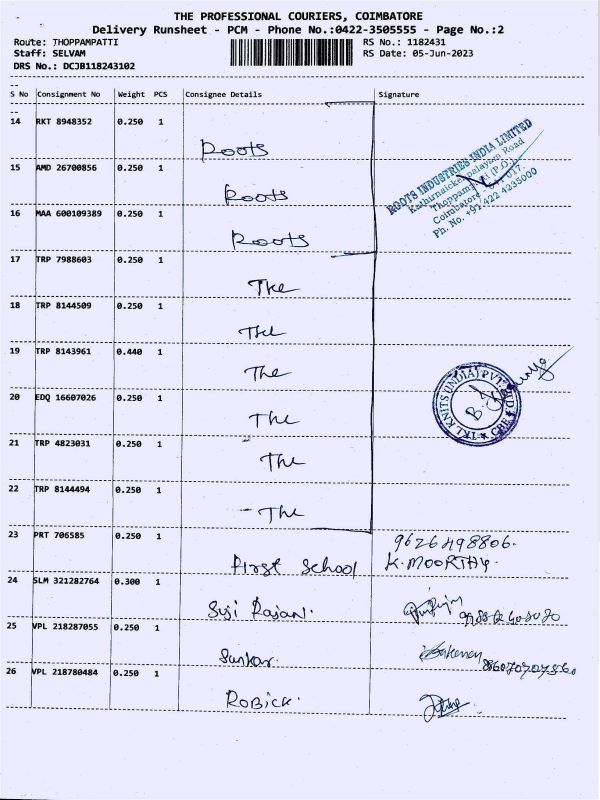 THE PROFESSIONAL COURIERS, COIMBATORE
Delivery Runsheet - PCM - Phone No.:0422-3505555 - Page No.:2
Route: THOPPAMPATTI RS No.: 1182431
Staff: SELVAM RS Date: 05-Jun-2023
DRS No.: DCJB118243102
--
S No Consignment No Weight PCS Consignee Details Signature
--
14 RKT 8948352 0.250 1 Roots
15 AMD 26700856 0.250 1 Roots
16 MAA 600109389 0.250 1 Roots
ROOTS INDUSTRIES INDIA LIMITED
Road
Coimbatore
Ph. No. +91 422 4235000
17 TRP 7988603 0.250 1 The
18 TRP 8144509 0.250 1 The
19 TRP 8143961 0.440 1 The
20 EDQ 16607026 0.250 1 The
TKT KNITS (INDIA) PVT. LTD CBE
21 TRP 4823031 0.250 1 The
22 TRP 8144494 0.250 1 - The
23 PRT 706585 0.250 1 First School 9626498806.
K.MOORTHY.
24 SLM 321282764 0.300 1 Suji Rajan.
25 VPL 218287055 0.250 1 Sankar.
26 VPL 218780484 0.250 1 ROBICK.